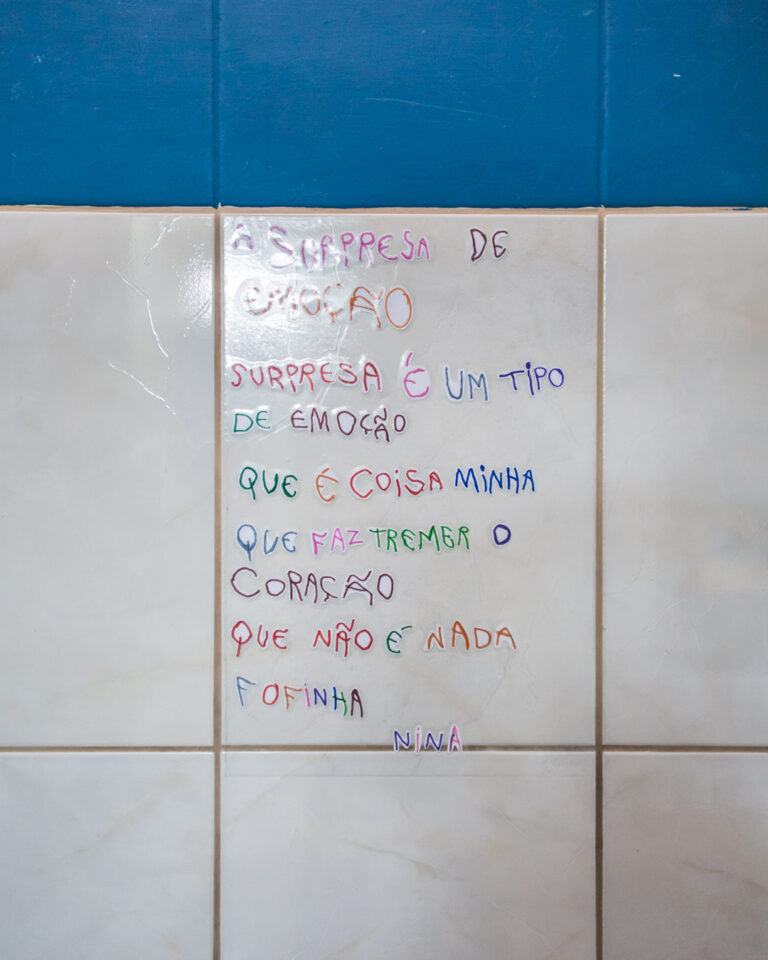 A SURPRESA DE
EMOÇÃO
SURPRESA É UM TIPO
DE EMOÇÃO
QUE É COISA MINHA
QUE FAZ TREMER O
CORAÇÃO
QUE NÃO É NADA
FOFINHA
NINA